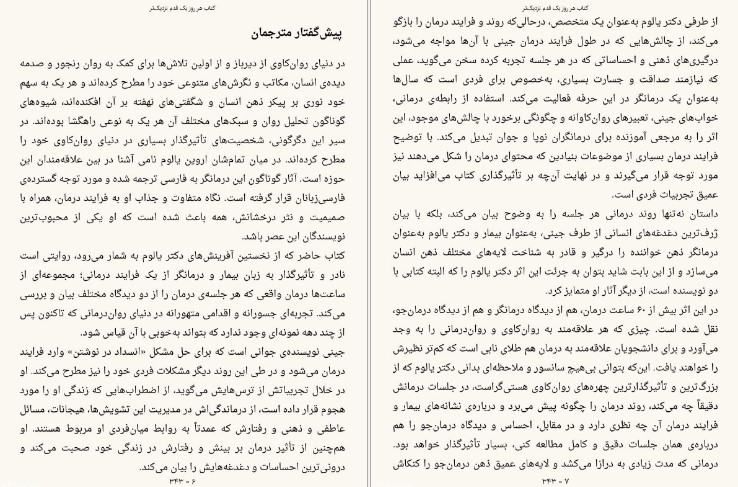 کتاب هر روز یک قدم نزدیک‌تر
پیش‌گفتار مترجمان
در دنیای روان‌کاوی از دیرباز و از اولین تلاش‌ها برای کمک به روان رنجور و صدمه
دیده‌ی انسان، مکاتب و نگرش‌های متنوعی خود را مطرح کرده‌اند و هر یک به سهم
خود نوری بر پیکر ذهن انسان و شگفتی‌های نهفته بر آن افکنده‌اند، شیوه‌های
گوناگون تحلیل روان و سبک‌های مختلف آن هر یک به نوعی راهگشا بوده‌اند. در
سیر این دگرگونی، شخصیت‌های تأثیرگذار بسیاری در دنیای روان‌کاوی خود را
مطرح کرده‌اند. در میان تمام‌شان اروین یالوم نامی آشنا در بین علاقه‌مندان این
حوزه است. آثار گوناگون این درمانگر به فارسی ترجمه شده و مورد توجه گسترده‌ی
فارسی‌زبانان قرار گرفته است. نگاه متفاوت و جذاب او به فرایند درمان، همراه با
صمیمیت و نثر درخشانش، همه باعث شده است که او یکی از محبوب‌ترین
نویسندگان این عصر باشد.
کتاب حاضر که از نخستین آفرینش‌های دکتر یالوم به شمار می‌رود، روایتی است
نادر و تأثیرگذار به زبان بیمار و درمانگر از یک فرایند درمانی؛ مجموعه‌ای از
ساعت‌ها درمان واقعی که هر جلسه‌ی درمان را از دو دیدگاه مختلف بیان و بررسی
می‌کند. تجربه‌ای جسورانه و اقدامی متهورانه در دنیای روان‌درمانی که تاکنون پس
از چند دهه نمونه‌ای وجود ندارد که بتواند به‌خوبی با آن قیاس شود.
جینی نویسنده‌ی جوانی است که برای حل مشکل «انسداد در نوشتن» وارد فرایند
درمان می‌شود و در طی این روند دیگر مشکلات فردی خود را نیز مطرح می‌کند. او
در خلال تجربیاتش از ترس‌هایش می‌گوید، از اضطراب‌هایی که زندگی او را مورد
هجوم قرار داده است، از درماندگی‌اش در مدیریت این تشویش‌ها، هیجانات، مسائل
عاطفی و ذهنی و رفتارش که عمدتاً به روابط میان‌فردی او مربوط هستند. او
هم‌چنین از تأثیر درمان بر بینش و رفتارش در زندگی خود صحبت می‌کند و
درونی‌ترین احساسات و دغدغه‌هایش را بیان می‌کند.
۶ - ۳۴۳
کتاب هر روز یک قدم نزدیک‌تر
از طرفی دکتر یالوم به‌عنوان یک متخصص، درحالی‌که روند و فرایند درمان را بازگو
می‌کند، از چالش‌هایی که در طول فرایند درمان جینی با آن‌ها مواجه می‌شود،
درگیری‌های ذهنی و احساساتی که در هر جلسه تجربه کرده سخن می‌گوید، عملی
که نیازمند صداقت و جسارت بسیاری، به‌خصوص برای فردی است که سال‌ها
به‌عنوان یک درمانگر در این حرفه فعالیت می‌کند. استفاده از رابطه‌ی درمانی،
خواب‌های جینی، تعبیرهای روان‌کاوانه و چگونگی برخورد با چالش‌های موجود، این
اثر را به مرجعی آموزنده برای درمانگران نوپا و جوان تبدیل می‌کند. با توضیح
فرایند درمان بسیاری از موضوعات بنیادین که محتوای درمان را شکل می‌دهند نیز
مورد توجه قرار می‌گیرند و در نهایت آن‌چه بر تأثیرگذاری کتاب می‌افزاید بیان
عمیق تجربیات فردی است.
داستان نه‌تنها روند درمانی هر جلسه را به وضوح بیان می‌کند، بلکه با بیان
ژرف‌ترین دغدغه‌های انسانی از طرف جینی، به‌عنوان بیمار و دکتر یالوم به‌عنوان
درمانگر ذهن خواننده را درگیر و قادر به شناخت لایه‌های مختلف ذهن انسان
می‌سازد و از این بابت شاید بتوان به جرئت این اثر دکتر یالوم را که البته کتابی با
دو نویسنده است، از دیگر آثار او متمایز کرد.
در این اثر بیش از ۶۰ ساعت درمان، هم از دیدگاه درمانگر و هم از دیدگاه درمان‌جو،
نقل شده است. چیزی که هر علاقه‌مند به روان‌کاوی و روان‌درمانی را به وجد
می‌آورد و برای دانشجویان علاقه‌مند به درمان هم طلای نابی است که کم‌تر نظیرش
را خواهند یافت. این‌که بتوانی بی‌هیچ سانسور و ملاحظه‌ای بدانی دکتر یالوم که از
بزرگ‌ترین و تأثیرگذارترین چهره‌های روان‌کاوی هستی‌گراست، در جلسات درمانش
دقیقاً چه می‌کند، روند درمان را چگونه پیش می‌برد و درباره‌ی نشانه‌های بیمار و
فرایند درمان آن چه نظری دارد و در مقابل، احساس و دیدگاه درمان‌جو را هم
درباره‌ی همان جلسات دقیق و کامل مطالعه کنی، بسیار تأثیرگذار خواهد بود.
درمانی که مدت زیادی به درازا می‌کشد و لایه‌های عمیق ذهن درمان‌جو را کنکاش
۷ - ۳۴۳